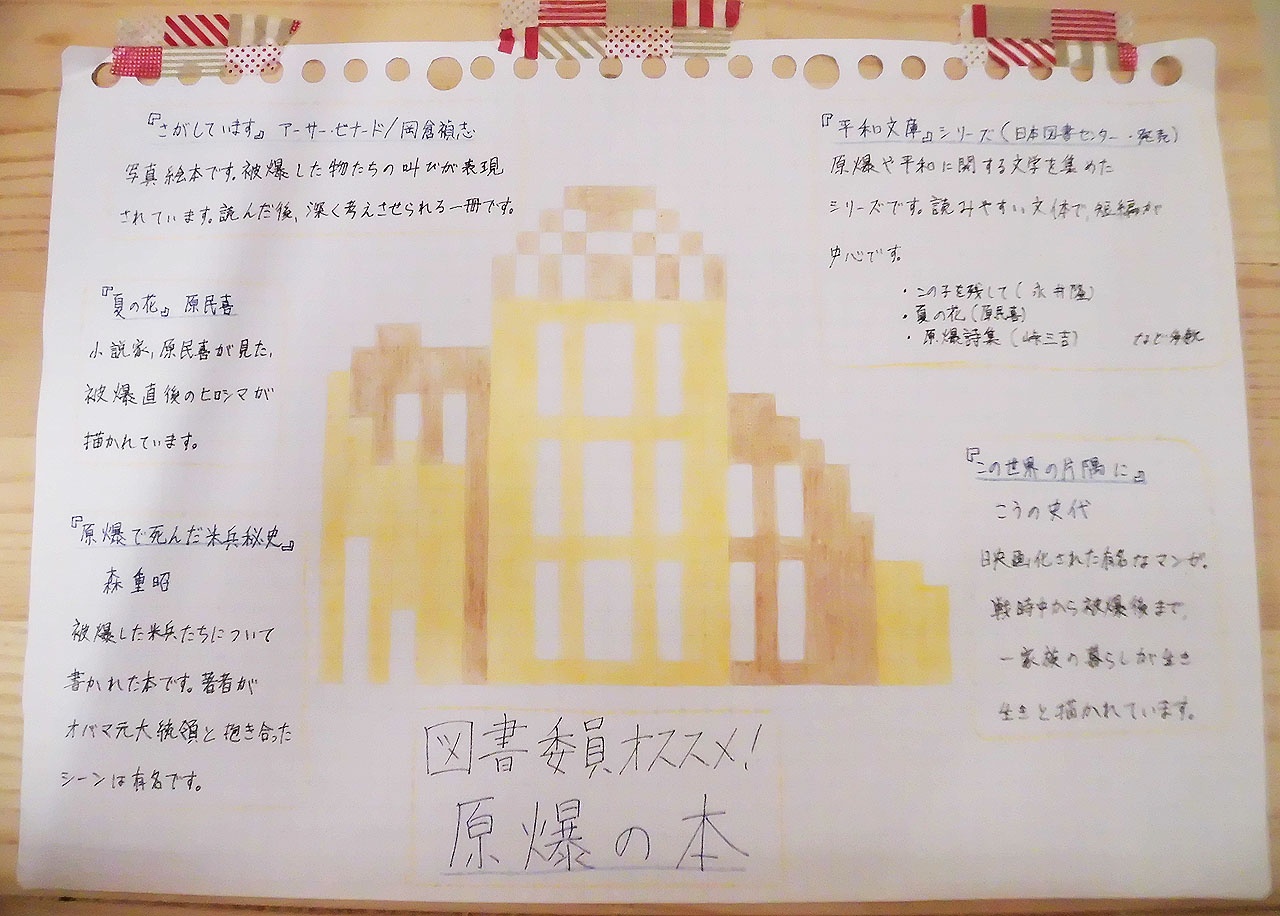 『さがしています』 アーサー・ビナード/岡倉禎志
写真絵本です。被爆した物たちの叫びが表現
されています。読んだ後、深く考えさせられる一冊です。
『夏の花』 原民喜
小説家、原民喜が見た、
被爆直後のヒロシマが
描かれています。
『原爆で死んだ米兵秘史』
森重昭
被爆した米兵たちについて
書かれた本です。著者が
オバマ元大統領と抱き合った
シーンは有名です。
『平和文庫』シリーズ(日本図書センター・発売)
原爆や平和に関する文学を集めた
シリーズです。読みやすい文体で、短編が
中心です。
・この子を残して(永井隆)
・夏の花(原民喜)
・原爆詩集(峠三吉) など多数
『この世界の片隅に』
こうの史代
映画化された有名なマンガ。
戦時中から被爆後まで、
一家族の暮らしが生き
生きと描かれています。
図書委員オススメ!
原爆の本